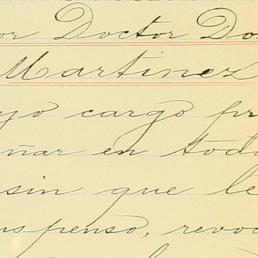 or Doctor Do
Martinez
yo cargo pr
ñar en todo
sin que le
uspenso, revoc